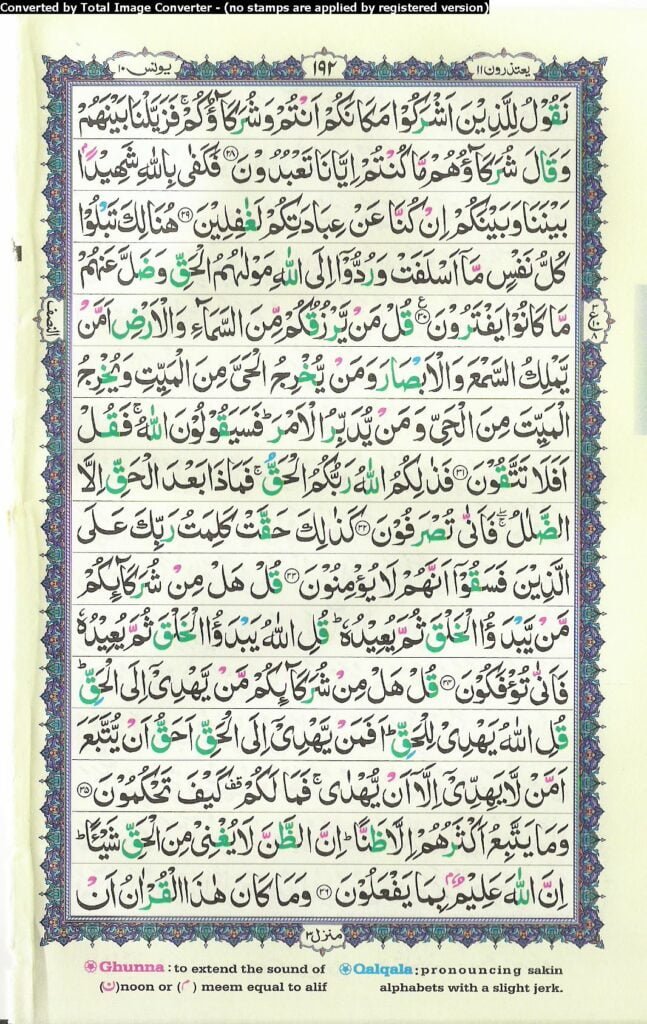 Converted by Total Image Converter - (no stamps are applied by registered version)
يعتذرون ١١
١٩٢
يونس ١٠
نَقُوْلُ لِلَّذِيْنَ اَشْرَكُوْا مَكَانَكُمْ اَنْتُمْ وَشُرَكَآؤُكُمْ ۚ فَزَيَّلْنَا بَيْنَهُمْ
وَقَالَ شُرَكَآؤُهُمْ مَّا كُنْتُمْ اِيَّانَا تَعْبُدُوْنَ ﴿۲۸﴾ فَكَفٰى بِاللّٰهِ شَهِيْدًۢا
بَيْنَنَا وَبَيْنَكُمْ اِنْ كُنَّا عَنْ عِبَادَتِكُمْ لَغٰفِلِيْنَ ﴿۲۹﴾ هُنَالِكَ تَبْلُوْا
كُلُّ نَفْسٍ مَّاۤ اَسْلَفَتْ وَرُدُّوْۤا اِلَى اللّٰهِ مَوْلٰىهُمُ الْحَقِّ وَضَلَّ عَنْهُمْ
مَّا كَانُوْا يَفْتَرُوْنَ ﴿۳۰﴾ ع قُلْ مَنْ يَّرْزُقُكُمْ مِّنَ السَّمَآءِ وَالْاَرْضِ اَمَّنْ
يَّمْلِكُ السَّمْعَ وَالْاَبْصَارَ وَمَنْ يُّخْرِجُ الْحَيَّ مِنَ الْمَيِّتِ وَيُخْرِجُ
الْمَيِّتَ مِنَ الْحَيِّ وَمَنْ يُّدَبِّرُ الْاَمْرَ ؕ فَسَيَقُوْلُوْنَ اللّٰهُ ۚ فَقُلْ
اَفَلَا تَتَّقُوْنَ ﴿۳۱﴾ فَذٰلِكُمُ اللّٰهُ رَبُّكُمُ الْحَقُّ ۚ فَمَاذَا بَعْدَ الْحَقِّ اِلَّا
الضَّلٰلُ ۖۚ فَاَنّٰى تُصْرَفُوْنَ ﴿۳۲﴾ كَذٰلِكَ حَقَّتْ كَلِمَتُ رَبِّكَ عَلَى
الَّذِيْنَ فَسَقُوْۤا اَنَّهُمْ لَا يُؤْمِنُوْنَ ﴿۳۳﴾ قُلْ هَلْ مِنْ شُرَكَآئِكُمْ
مَّنْ يَّبْدَؤُا الْخَلْقَ ثُمَّ يُعِيْدُهٗ ؕ قُلِ اللّٰهُ يَبْدَؤُا الْخَلْقَ ثُمَّ يُعِيْدُهٗ
فَاَنّٰى تُؤْفَكُوْنَ ﴿۳۴﴾ قُلْ هَلْ مِنْ شُرَكَآئِكُمْ مَّنْ يَّهْدِيْۤ اِلَى الْحَقِّ ؕ
قُلِ اللّٰهُ يَهْدِيْ لِلْحَقِّ ؕ اَفَمَنْ يَّهْدِيْۤ اِلَى الْحَقِّ اَحَقُّ اَنْ يُّتَّبَعَ
اَمَّنْ لَّا يَهِدِّيْۤ اِلَّاۤ اَنْ يُّهْدٰى ۚ فَمَا لَكُمْ قف كَيْفَ تَحْكُمُوْنَ ﴿۳۵﴾
وَمَا يَتَّبِعُ اَكْثَرُهُمْ اِلَّا ظَنًّا ؕ اِنَّ الظَّنَّ لَا يُغْنِيْ مِنَ الْحَقِّ شَيْـًٔا ؕ
اِنَّ اللّٰهَ عَلِيْمٌۢ بِمَا يَفْعَلُوْنَ ﴿۳۶﴾ وَمَا كَانَ هٰذَا الْقُرْاٰنُ اَنْ
النصف
منزل ٣
Ghunna : to extend the sound of
(ن)noon or (م) meem equal to alif
Qalqala : pronouncing sakin
alphabets with a slight jerk.